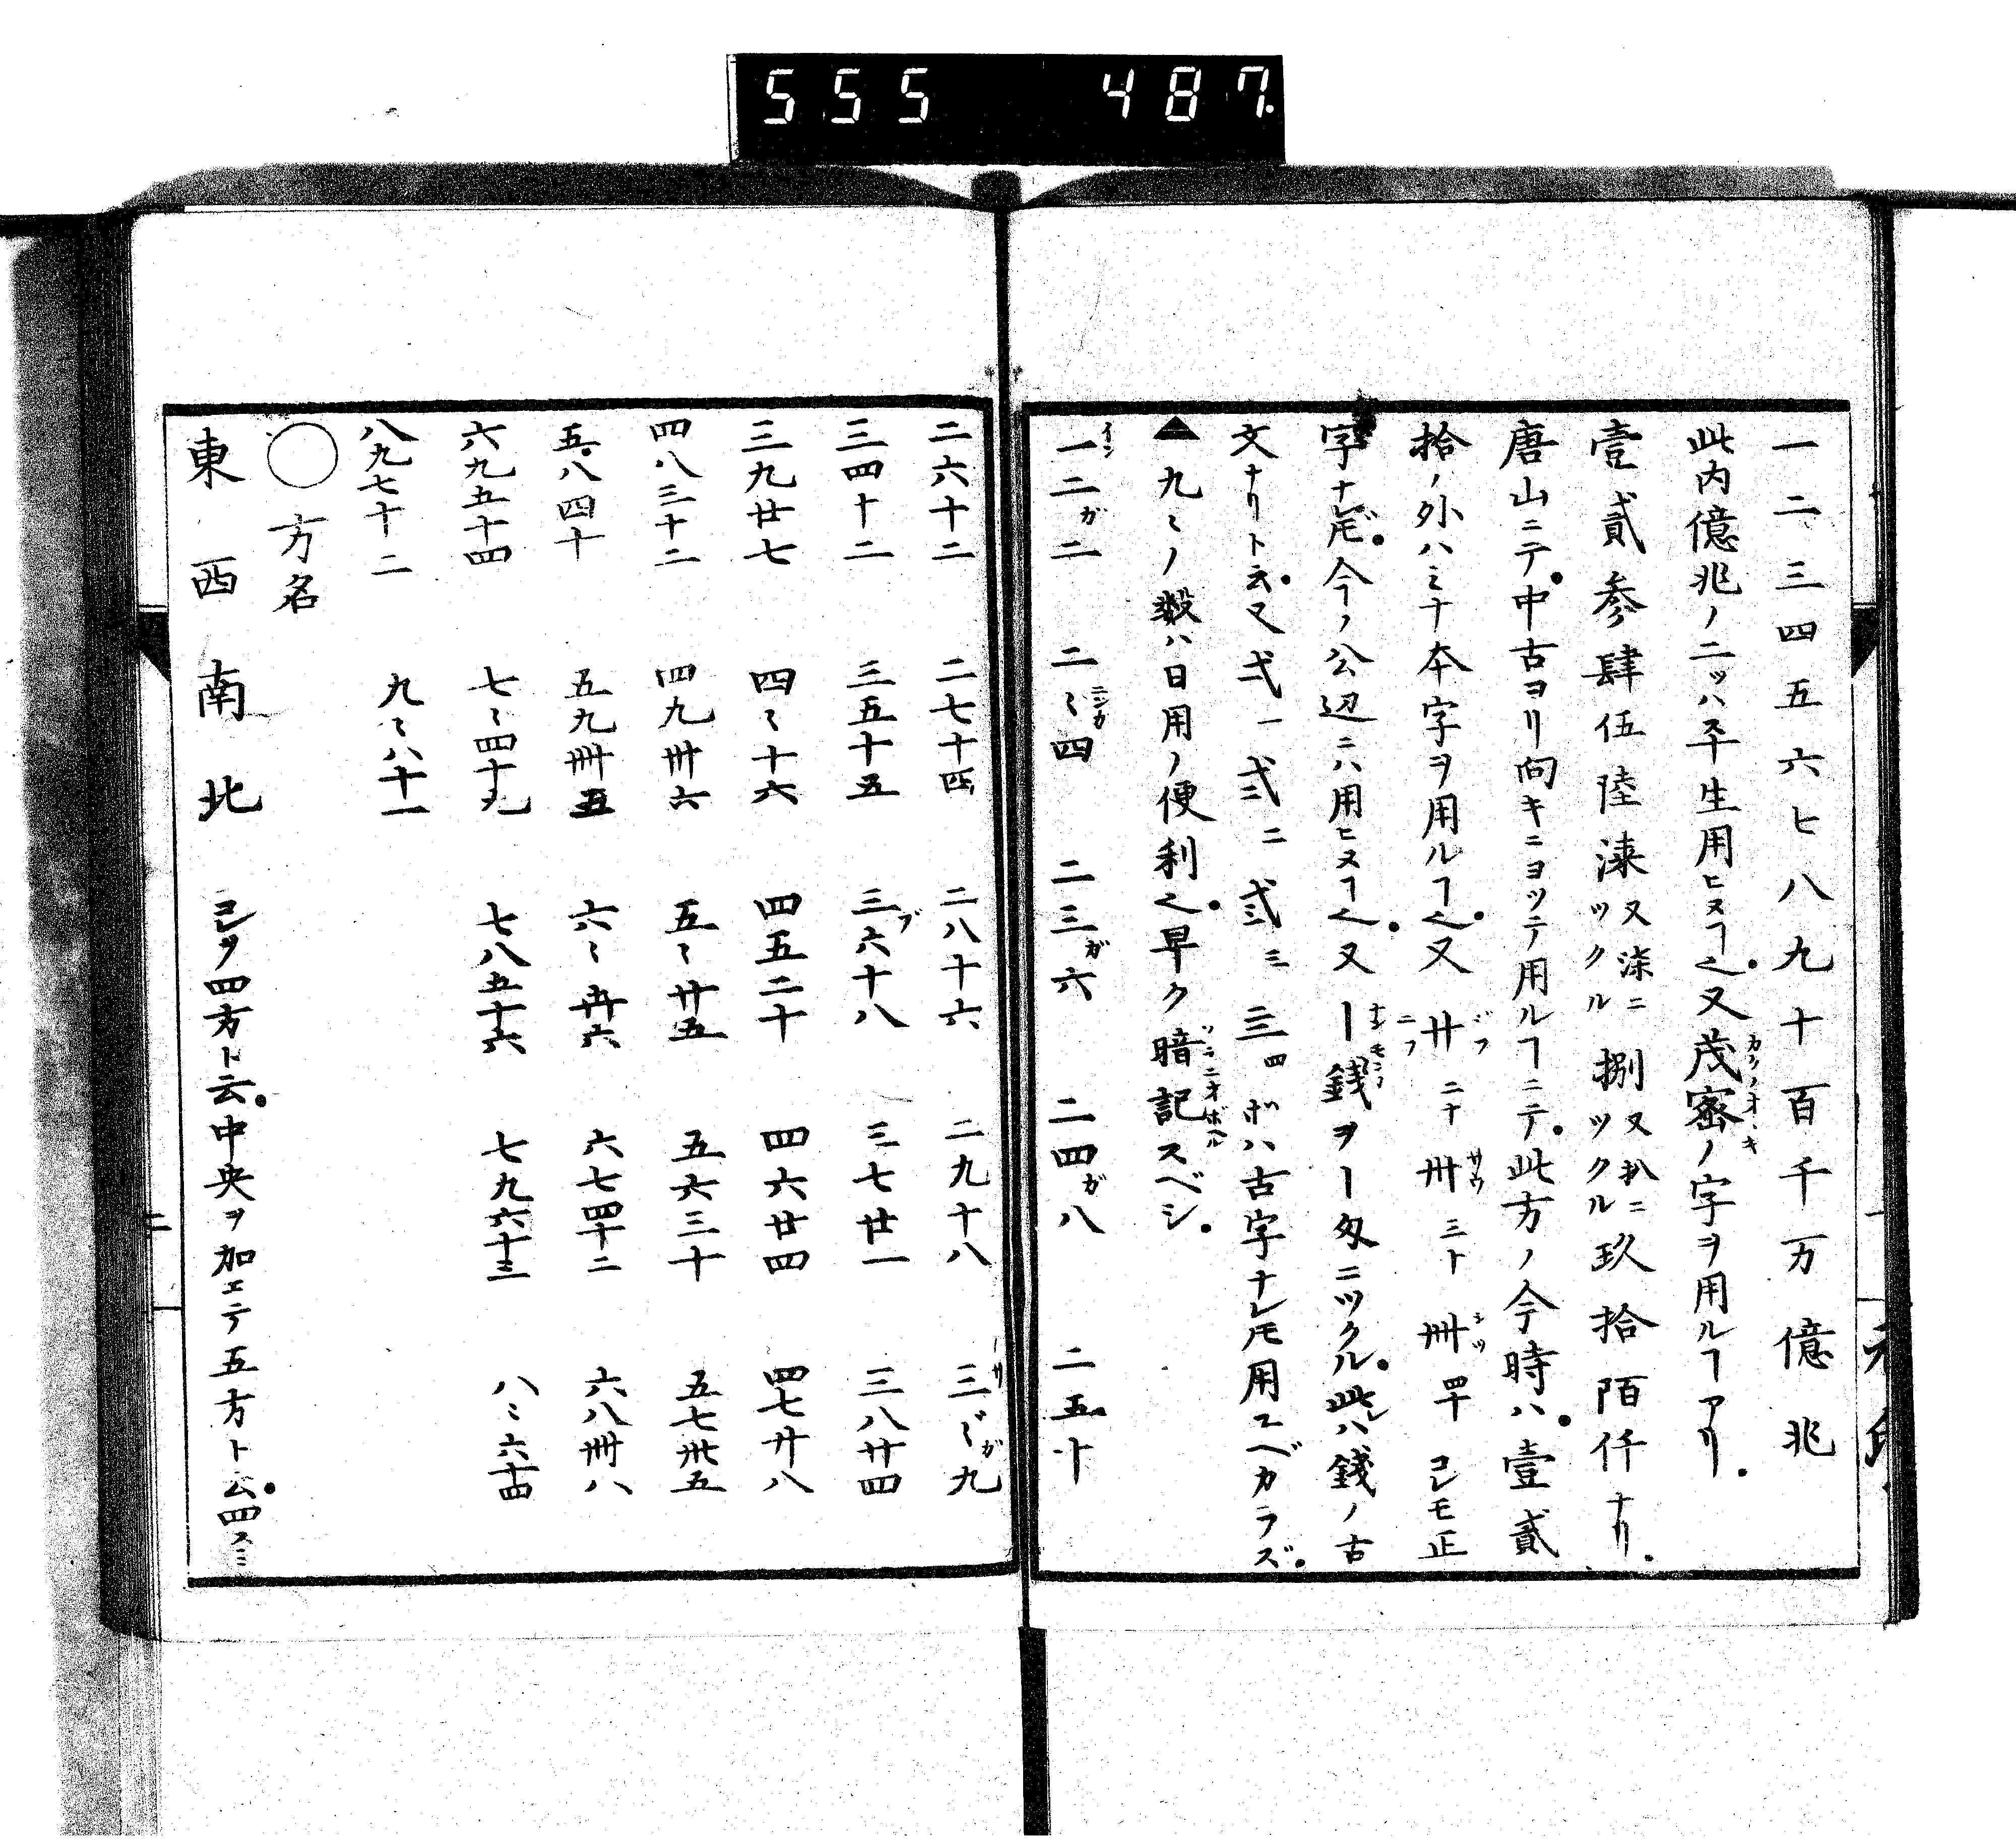 555 487.
一二三四五六七八九十百千万億兆
此内億兆ノ二ツハ平生用ヒヌヿ也又茂密ノ字ヲ用ルヿアリ
壹貳参肆伍陸漆ツクル又柒ニ捌ツクル又扒ニ玖拾陌仟ナリ
唐山ニテ中古ヨリ向キニヨツテ用ルヿニテ此方ノ今時ハ壹貳
拾ノ外ハミナ本字ヲ用ルヿ也又廿二十卅三十卌四十コレモ正
字ナレ𪜈今ノ公辺ニハ用ヒヌヿ也又ー錢ヲー匁ニツクル此レハ錢ノ古
文ナリト云又弌一弍二弎三亖四ホハ古字ナレ𪜈用ユベカラズ
▲九〻ノ数ハ日用ノ便利也早ク暗記スベシ
一二ガ二 二〻四 二三ガ六 二四ガ八 二五十
二六十二 二七十四 二八十六 二九十八 三〻ガ九
三四十二 三五十五 三六十八 三七廿一 三八廿四
三九廿七 四〻十六 四五二十 四六廿四 四七廿八
四八三十二 四九卅六 五〻廿五 五六三十 五七卅五
五八四十 五九卌五 六〻卅六 六七四十二 六八卌八
六九五十四 七〻四十九 七八五十六 七九六十三 八〻六十四
八九七十二 九〻八十一
○方名
東西南北 コレヲ四方ト云中央ヲ加エテ五方ト云四スミ